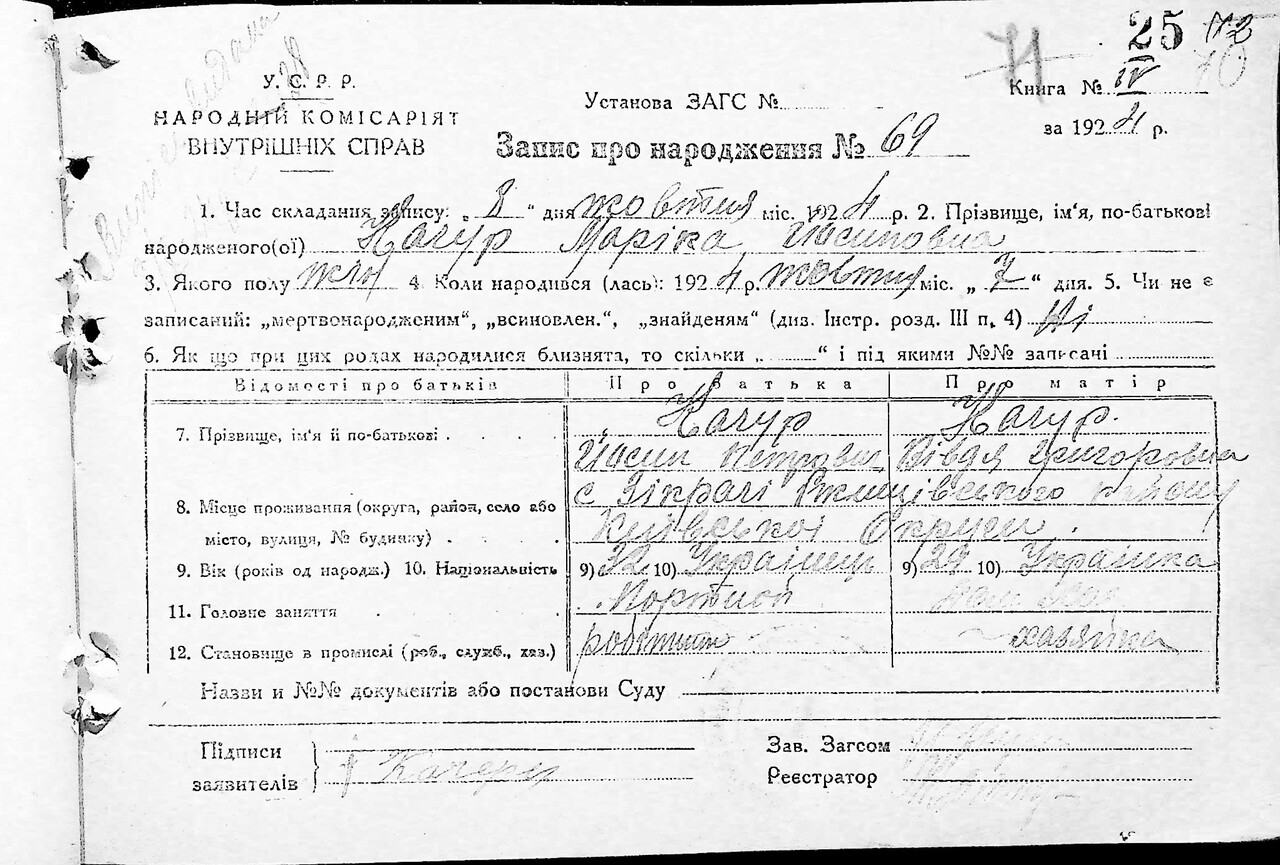 25 112
71 70
У.С.Р.Р.
НАРОДНІЙ КОМІСАРІЯТ
ВНУТРІШНІХ СПРАВ
Установа ЗАГС №
Книга № IV
за 1924 р.
Запис про народження № 69
1. Час складання запису: „ 8 “ дня жовтня міс. 1924 р. 2. Прізвище, ім'я, по-батькові
народженого(ої) Качур Маріка Йосиповна
3. Якого полу жін 4. Коли народився (лась): 1924 р. жовтня міс. „ 7 “ дня. 5. Чи не є
записаний: „мертвонародженим“, „всиновлен.“, „знайденям“ (диз. Інстр. розд. III п. 4) Ні
6. Як що при цих родах народилися близнята, то скільки „ “ і під якими №№ записачі
Відомості про батьків Про батька Про матір
7. Прізвище, ім'я й по-батькові Качур Качур.
Йосип Петрович Вівдя Григоровна
8. Місце проживання (округа, район, село або с Зікрачі Ржищівського району
місто, вулиця, № будинку) Київської Округи.
9. Вік (років од народж.) 10. Національність 9) 32 10) Українець 9) 29 10) Українка
11. Головне заняття Портной
12. Становище в промислі (роб., служб., хаз.) робітник хазяйка
Назви и №№ документів або постанови Суду
Підписи
заявителів
Зав. Загсом
Реєстратор